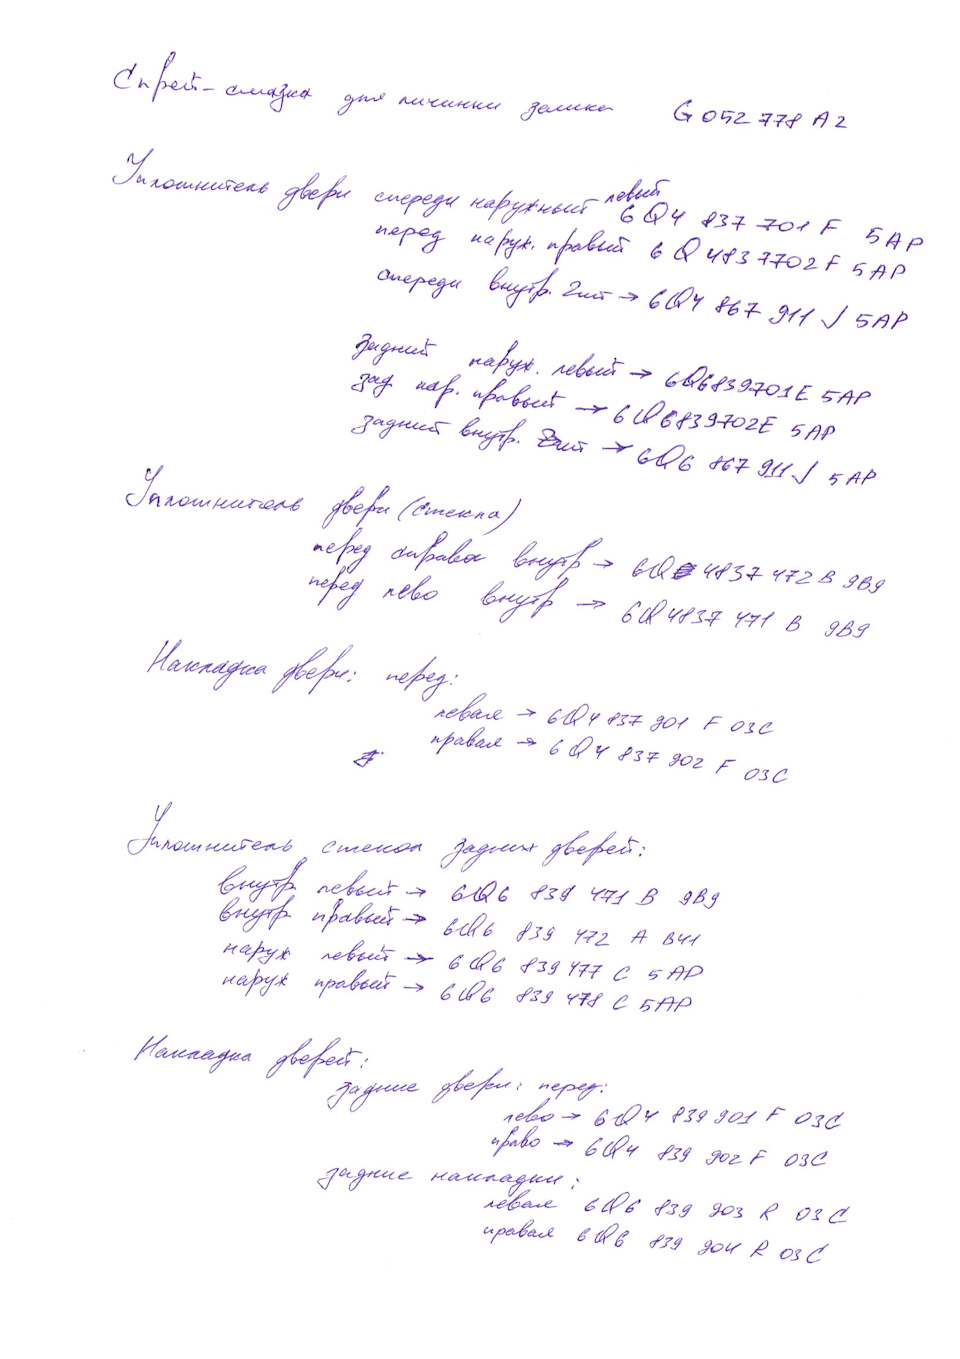 Спрей-смазка для личинки замка G 052 778 A2
Уплотнитель двери спереди наружный левый 6Q4 837 701 F 5AP
перед наруж. правый 6Q4837702F 5AP
спереди внутр. 2шт → 6Q4 867 911 J 5AP
задний наруж. левый → 6Q6839701E 5AP
зад нар. правый → 6Q6839702E 5AP
задний внутр. 2шт → 6Q6 867 911 J 5AP
Уплотнитель двери (стекла)
перед справа внутр → 6Q 4837 472 B 9B9
перед лево внутр → 6Q4837 471 B 9B9
Накладка двери: перед:
левая → 6Q4 837 901 F 03C
правая → 6Q4 837 902 F 03C
Уплотнитель стекол задних дверей:
внутр левый → 6Q6 839 471 B 9B9
внутр. правый → 6Q6 839 472 A B41
наруж левый → 6Q6 839 477 C 5AP
наруж правый → 6Q6 839 478 C 5AP
Накладка дверей:
задние двери: перед:
лево → 6Q4 839 901 F 03C
право → 6Q4 839 902 F 03C
задние накладки:
левая 6Q6 839 903 R 03C
правая 6Q6 839 904 R 03C